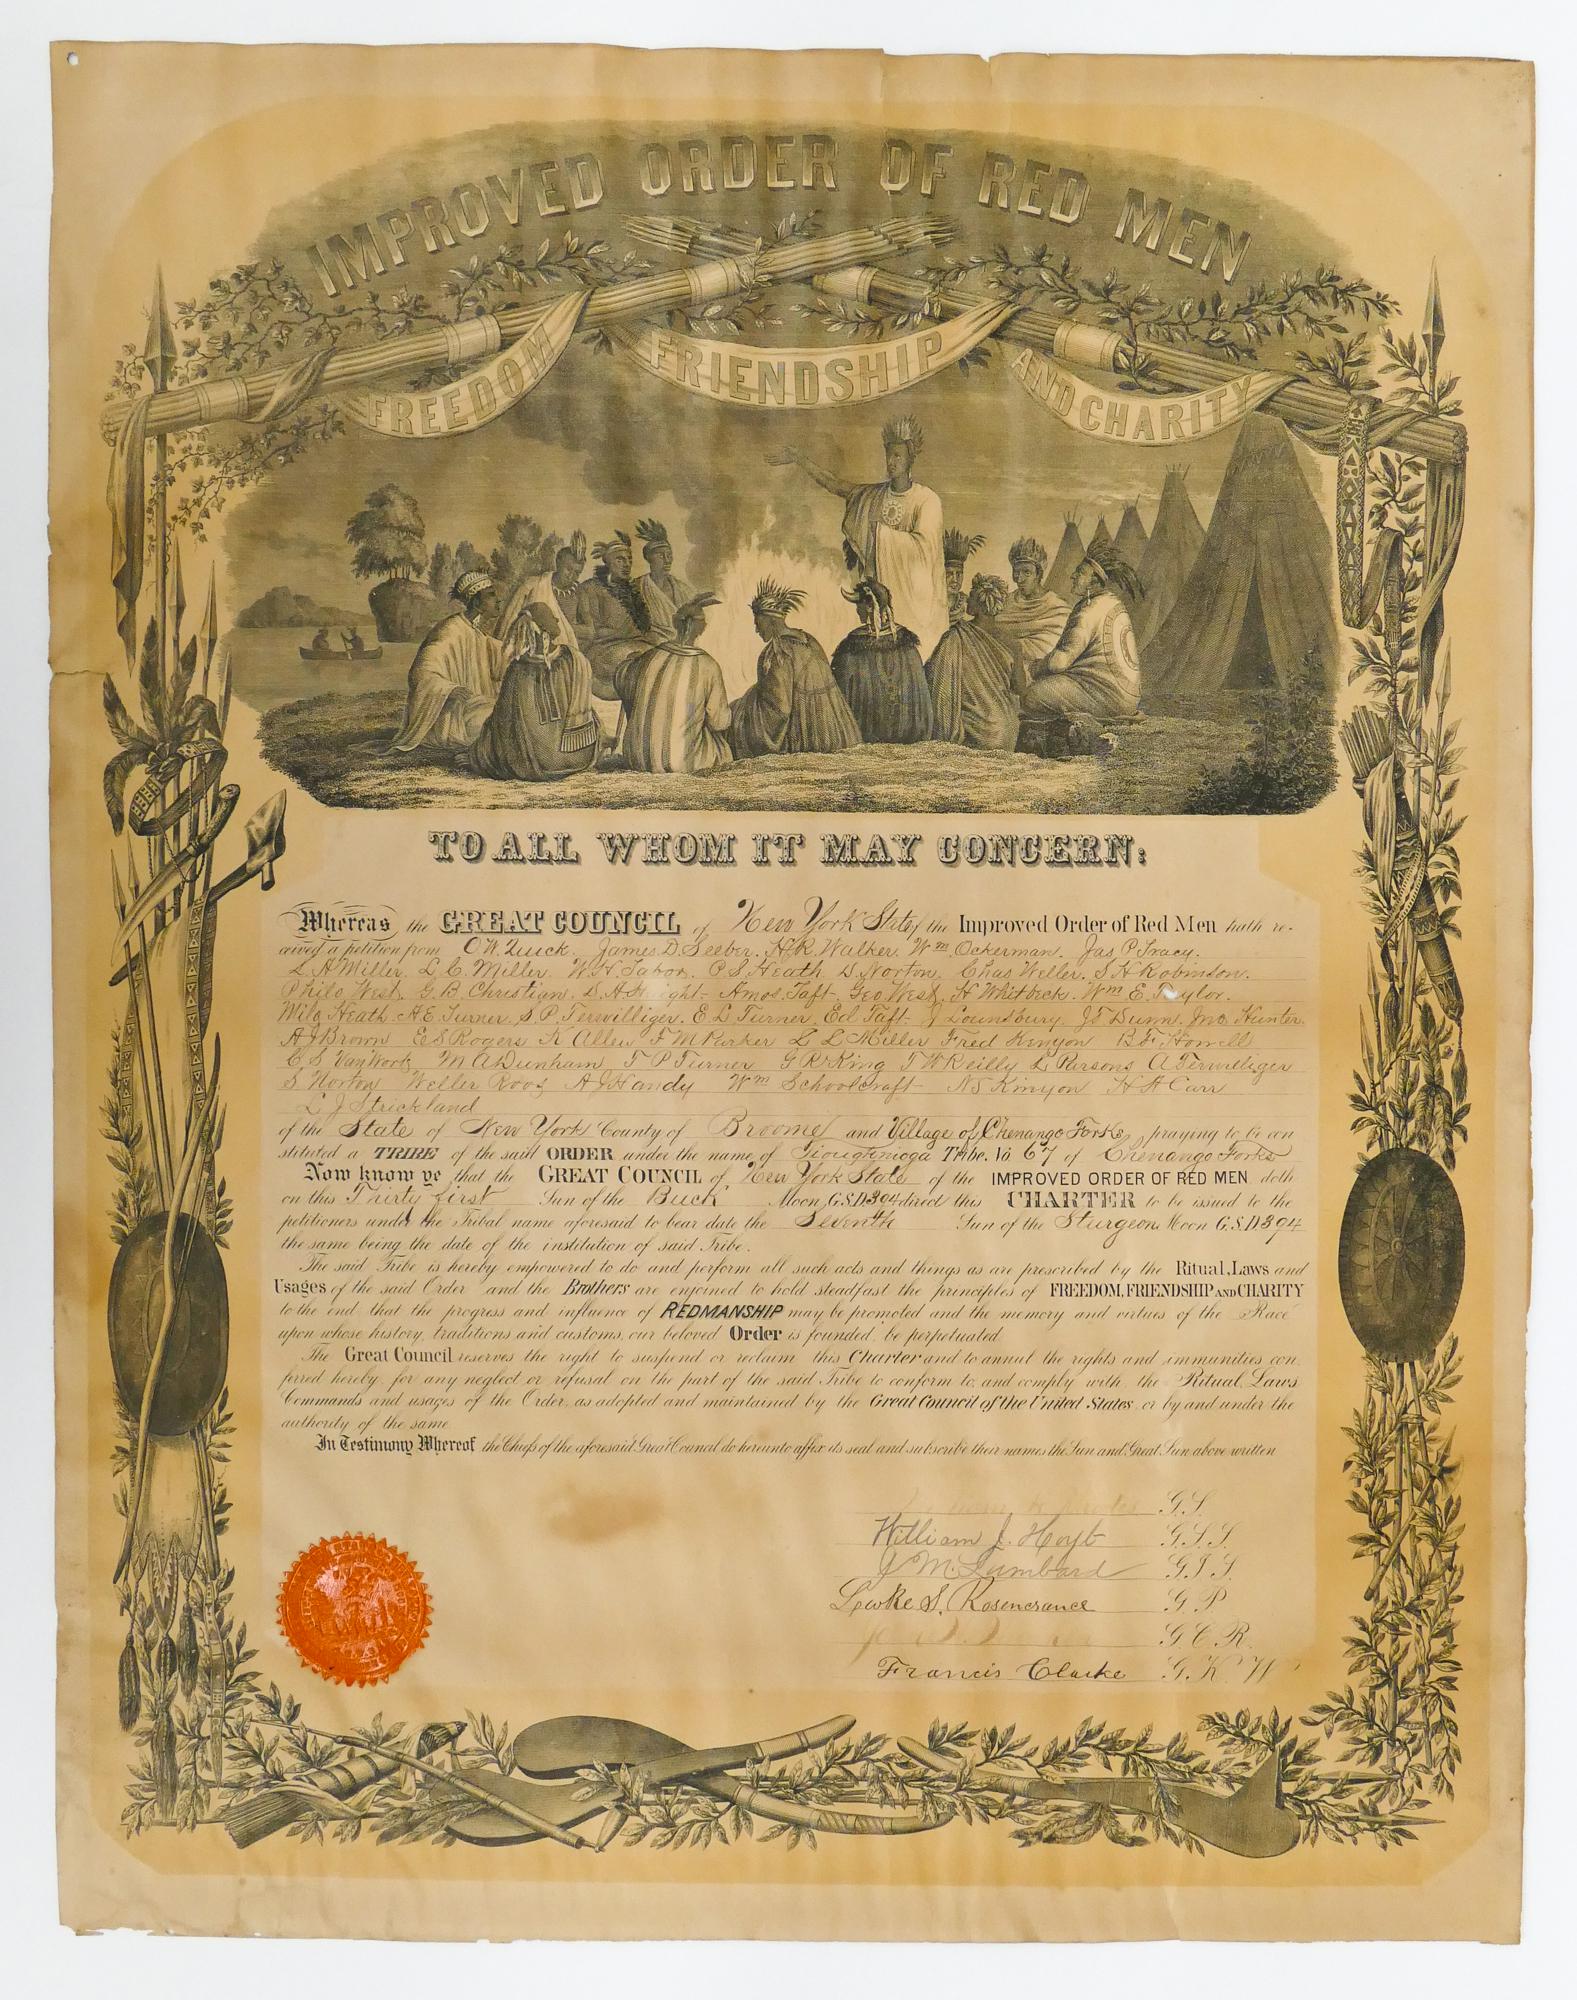 IMPROVED ORDER OF RED MEN
FREEDOM FRIENDSHIP AND CHARITY
TO ALL WHOM IT MAY CONCERN:
Whereas the GREAT COUNCIL of New York State of the Improved Order of Red Men hath re-
ceived a petition from O.W. Quick. James D. Seeber. H.R. Walker. Wm. Ockerman. Jas P. Tracy.
L. A. Miller. L. C. Miller. W. H. Tabor. P. S. Heath. D. Norton. Chas Weller. S. H. Robinson.
Philo West. G. B. Christian. Amos. Taft. Geo West. H Whitbeck. Wm E. Taylor.
Milo Heath. A. E. Turner. S. P. Terwilliger. E L Turner. Ed Taft. J Lounsbury. J. T. Dunn. Jno. Hunter.
A J Brown E S Rogers K Allen F M Parker L L Miller Fred Kenyon B. F. Howell
C. S. Van Wock M A Dunham T P Turner G R King T W Reilly L Parsons A Terwilliger
S. Norton Weller Roos A J Handy Wm Schoolcraft N S Kinyon H A Carr
L J Strickland
of the State of New York County of Broome and Village of Chenango Forks praying to be con
stituted a TRIBE of the said ORDER under the name of Tioughnioga Tribe. No 67 of Chenango Forks
Now know ye that the GREAT COUNCIL of New York State of the IMPROVED ORDER OF RED MEN doth
on this Thirty first Sun of the Buck Moon, G.S.D. 394 direct this CHARTER to be issued to the
petitioners under the Tribal name aforesaid to bear date the Seventh Sun of the Sturgeon Moon G.S.D 394
the same being the date of the institution of said Tribe.
The said Tribe is hereby empowered to do and perform all such acts and things as are prescribed by the Ritual, Laws and
Usages of the said Order and the Brothers are enjoined to hold steadfast the principles of FREEDOM, FRIENDSHIP AND CHARITY
to the end that the progress and influence of REDMANSHIP may be promoted and the memory and virtues of the Race
upon whose history, traditions and customs, our beloved Order is founded, be perpetuated.
The Great Council reserves the right to suspend or reclaim this Charter and to annul the rights and immunities con
ferred hereby, for any neglect or refusal on the part of the said Tribe to conform to, and comply with, the Ritual, Laws
Commands and usages of the Order, as adopted and maintained by the Great Council of the United States, or by and under the
authority of the same.
In Testimony Whereof the Chiefs of the aforesaid Great Council do hereunto affix its seal and subscribe their names the Sun and Great Sun above written
G.S.
William J. Hoyt G.S.S.
G M Lombard G.J.S.
Lewke S. Rosencrance G. P.
G. C. R.
Francis Clarke G. K. W